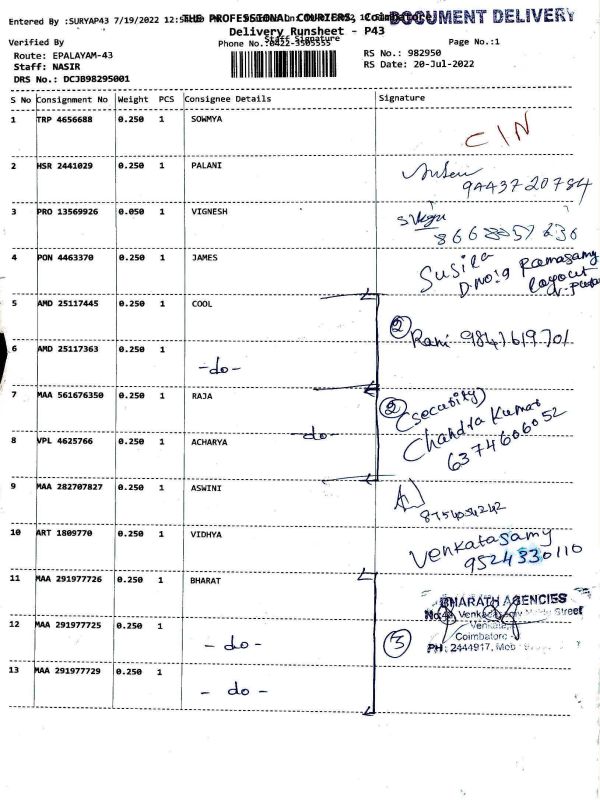 Entered By :SURYAP43 7/19/2022
THE PROFESSIONAL COURIERS, Coimbatore
DOCUMENT DELIVERY
Delivery Runsheet - P43
Staff Signature
Verified By
Phone No.:0422-3505555
Page No.:1
Route: EPALAYAM-43
RS No.: 982950
Staff: NASIR
RS Date: 20-Jul-2022
DRS No.: DCJB98295001
S No Consignment No Weight PCS Consignee Details Signature
1 TRP 4656688 0.250 1 SOWMYA
C/N
2 HSR 2441029 0.250 1 PALANI
9443720784
3 PRO 13569926 0.050 1 VIGNESH
4 PON 4463370 0.250 1 JAMES
Susila
D.NO:9 Ramasamy
layout
5 AMD 25117445 0.250 1 COOL
② Rani 9841619701
6 AMD 25117363 0.250 1
-do-
7 MAA 561676350 0.250 1 RAJA
② (security)
Chandra Kumar
6374606052
-do-
8 VPL 4625766 0.250 1 ACHARYA
9 MAA 282707827 0.250 1 ASWINI
10 ART 1809770 0.250 1 VIDHYA
Venkatasamy
9524330110
11 MAA 291977726 0.250 1 BHARAT
BHARATH AGENCIES
Street
12 MAA 291977725 0.250 1
Coimbatore
- do -
③ PH: 2444917, Mob
13 MAA 291977729 0.250 1
- do -